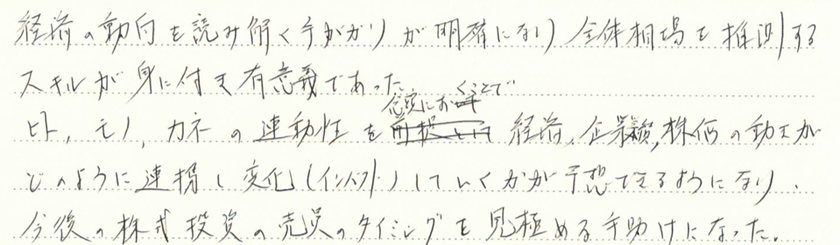 経済の動向を読み解く手がかりが明確になり全体相場を推測する
スキルが身に付き有意義であった。
ヒト、モノ、カネの連動性を念頭におくことで経済、企業業績,株価の動きが
どのように連携し変化(インパクト)していくかが予想できるようになり、
今後の株式投資の売買のタイミングを見極める手助けになった。